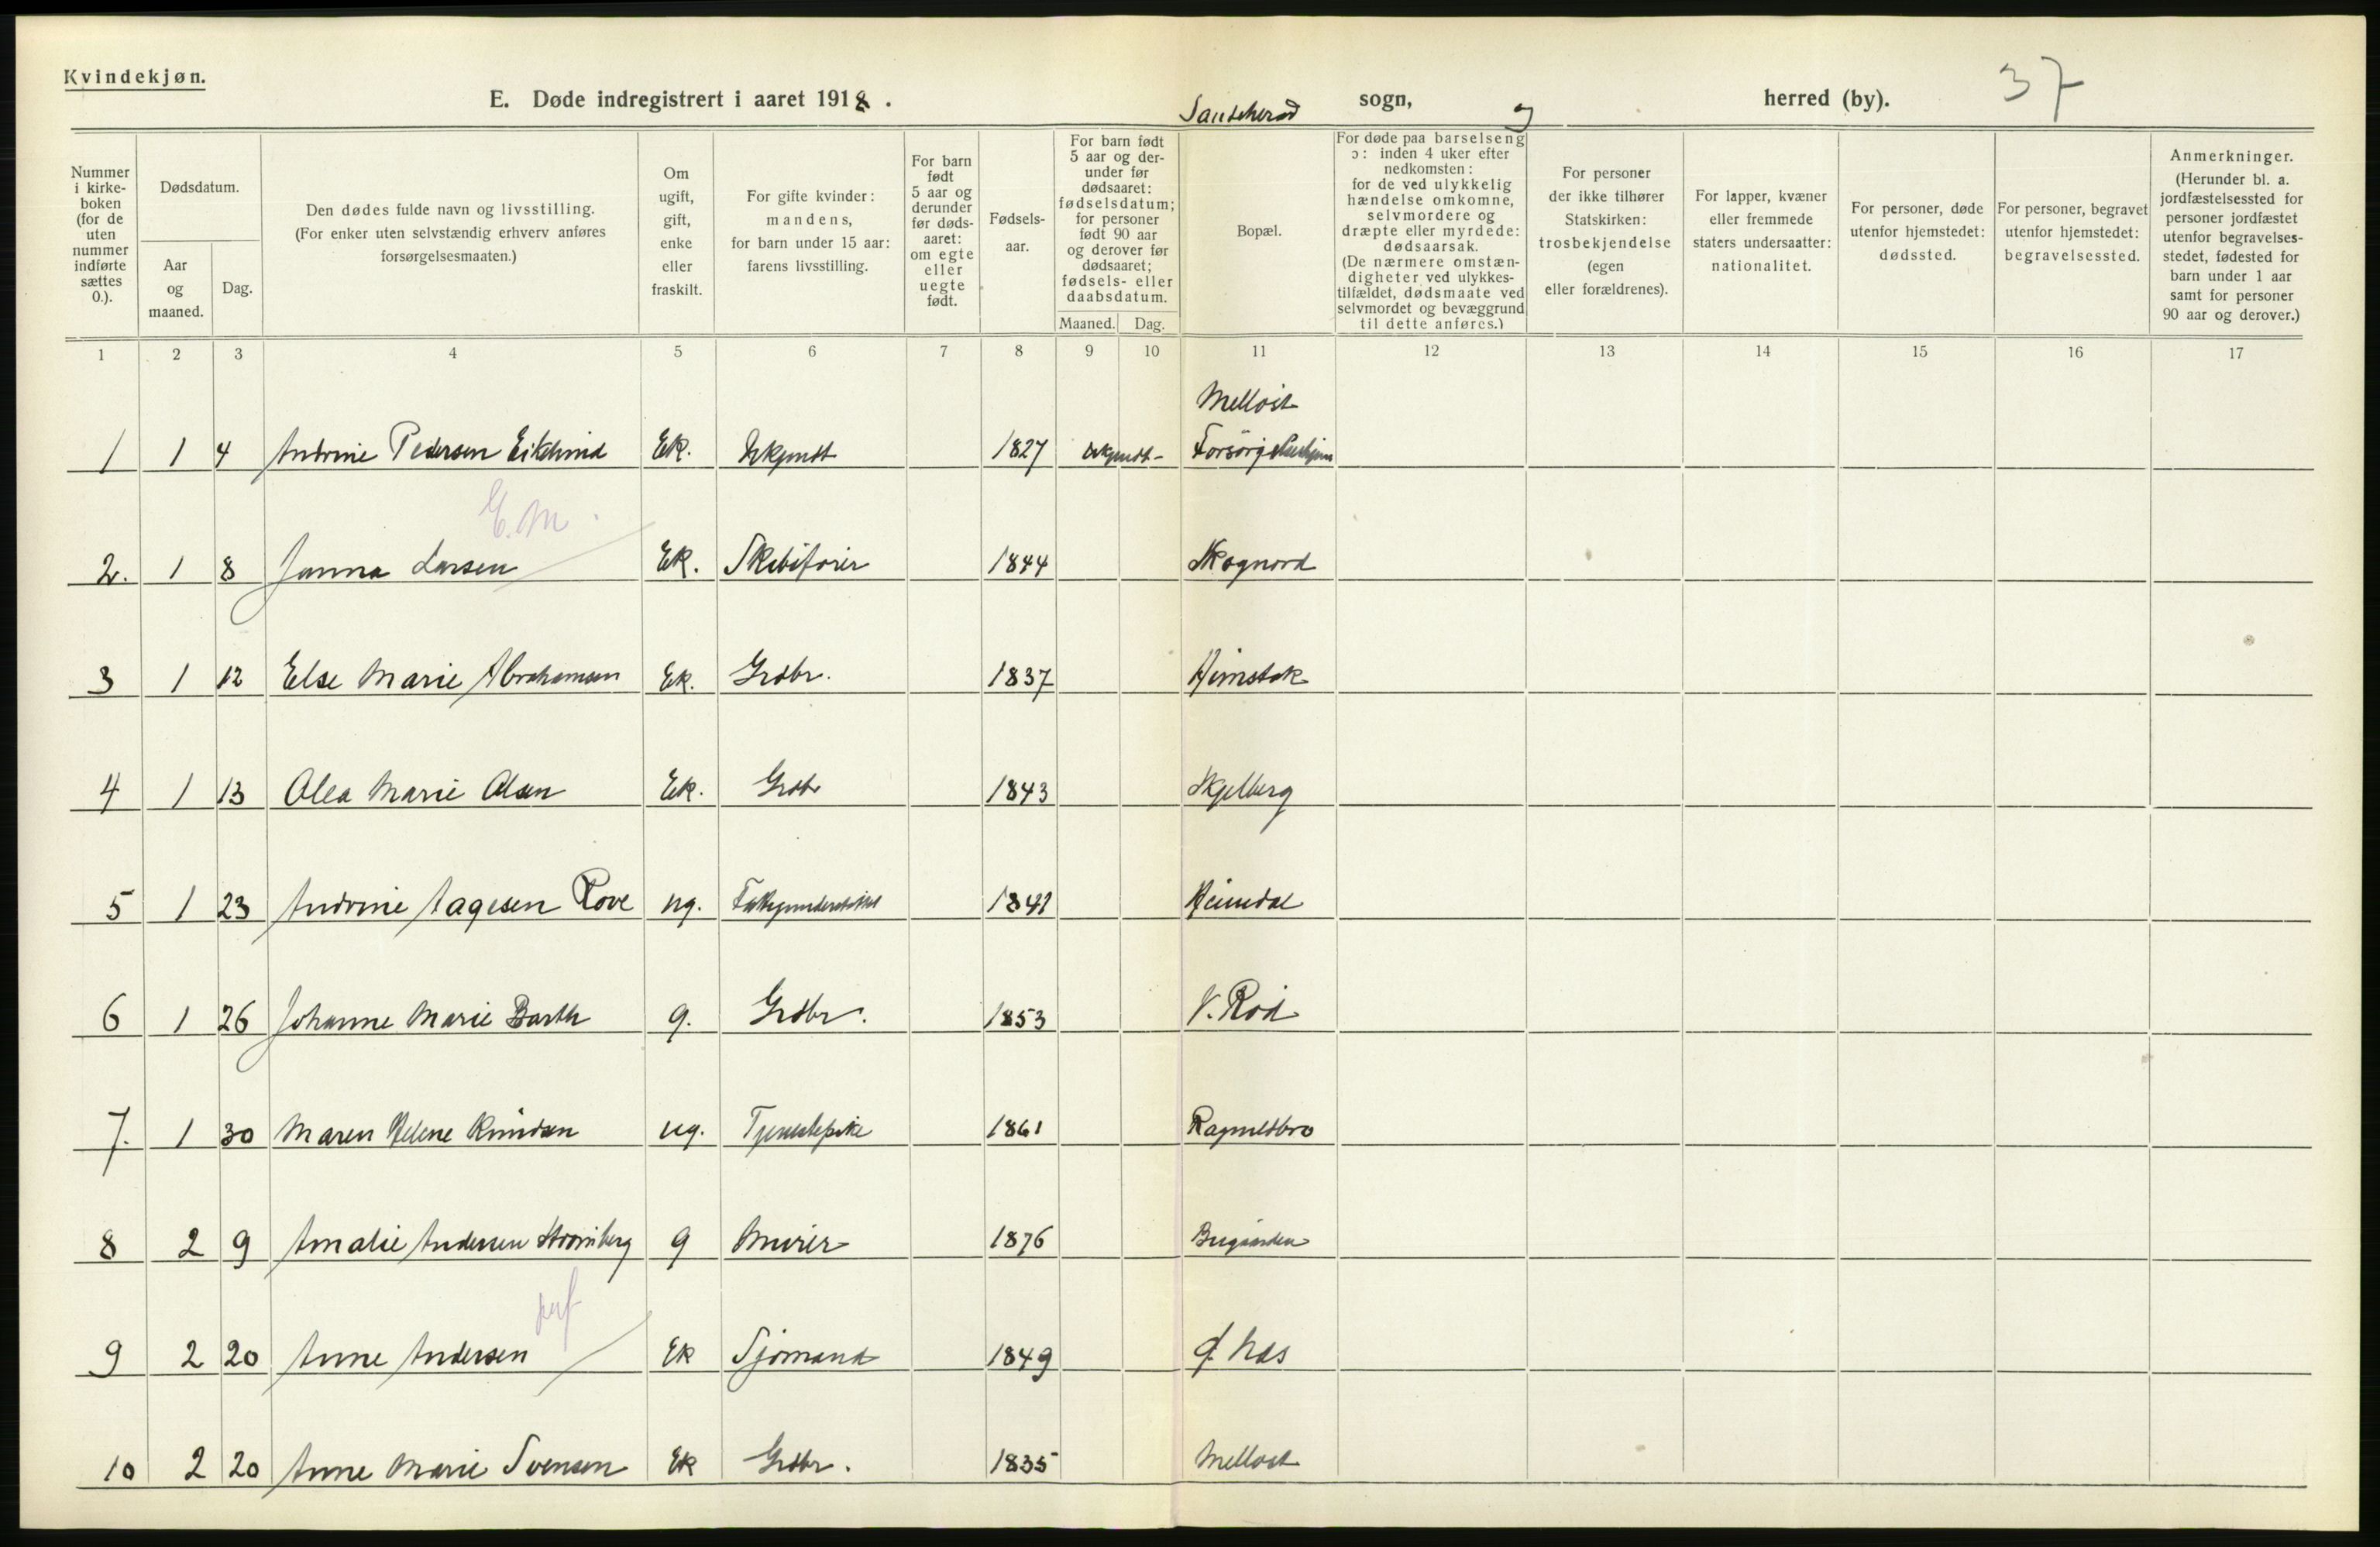 Kvindekjøn.
E. Døde indregistrert i aaret 1918. Sandeherad sogn, herred (by). 37
Nummer i kirkeboken (for de uten nummer indførte sættes 0.).
Dødsdatum.
Aar og maaned.
Dag.
Den dødes fulde navn og livsstilling.
(For enker uten selvstændig erhverv anføres forsørgelsesmaaten.)
Om ugift, gift, enke eller fraskilt.
For gifte kvinder: mandens, for barn under 15 aar: farens livsstilling.
For barn født 5 aar og derunder før dødsaaret: om egte eller uegte født.
Fødselsaar.
For barn født 5 aar og derunder før dødsaaret: fødselsdatum; for personer født 90 aar og derover før dødsaaret; fødsels- eller daabsdatum.
Maaned. Dag.
Bopæl.
For døde paa barselseng ɔ: inden 4 uker efter nedkomsten: for de ved ulykkelig hændelse omkomne, selvmordere og dræpte eller myrdede: dødsaarsak.
(De nærmere omstændigheter ved ulykkestilfældet, dødsmaate ved selvmordet og bevæggrund til dette anføres.)
For personer der ikke tilhører Statskirken: trosbekjendelse (egen eller forældrenes).
For lapper, kvæner eller fremmede staters undersaatter: nationalitet.
For personer, døde utenfor hjemstedet: dødssted.
For personer, begravet utenfor hjemstedet: begravelsessted.
Anmerkninger.
(Herunder bl. a. jordfæstelsessted for personer jordfæstet utenfor begravelsesstedet, fødested for barn under 1 aar samt for personer 90 aar og derover.)
1 2 3 4 5 6 7 8 9 10 11 12 13 14 15 16 17
Melløst
1 1 4 Andrine Pedersen Ek. Ukjendt 1827 Ukjendt Forsørgelseshjem
E.M.
2. 1 8 Janna Larsen Ek. Skibsfører 1844 Skognord
3 1 12 Else Marie Abrahamsen Ek. Grdbr. 1837 Himstok
4 1 13 Olea Marie Olsen Ek. Grdbr 1843 Skjelberg
5 1 23 Andrine Aagesen Rove ug. Fattigunderstøttet 1841 Heimdal
6 1 26 Johanne Marie Barth g. Grdbr. 1853 V. Rød
7. 1 30 Maren Helene Knudsen ug. Tjenestepike 1861 Ragnildbro
8 2 9 Amalie Andersen Strømberg g Murer 1876 Bugaarden
9 2 20 Anne Andersen Ek Sjømand 1849 Næs
10 2 20 Anne Marie Svensen Ek Grdbr. 1835 Melløst